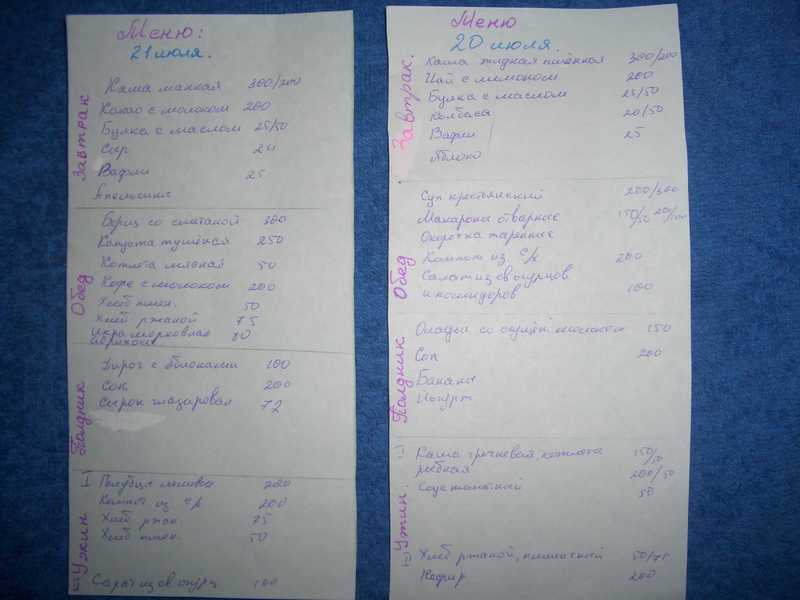 Меню:
21 июля.
Завтрак
Каша манная 300/200
Какао с молоком 200
Булка с маслом 25/50
Сыр 24
Вафли 25
Апельсины
Обед
Борщ со сметаной 300
Капуста тушёная 250
Котлета мясная 50
Кофе с молоком 200
Хлеб пшен. 50
Хлеб ржаной 75
Икра морковная
Абрикосы
Полдник
Пирог с яблоками 100
Сок 200
Сырок глазирован 72
Ужин
I Голубцы ленивые
Компот из с/х 200
Хлеб ржан 75
Хлеб пшен. 50
II Салат из св огурц 100
Меню
20 июля.
Завтрак.
Каша жидкая пшённая 300/200
Чай с лимоном 200
Булка с маслом 25/50
Колбаса 20/50
Вафли 25
Яблоко
Обед
Суп крестьянский 200/300
Макароны отварные 150/50
Окорочка жаренные
Компот из с/х 200
Салат из св огурцов
и помидоров 100
Полдник
Оладьи со сгущён молоком 150
Сок 200
Бананы
Йогурт
Ужин.
I Каша гречневая, котлета 150/50
рыбная 200/50
Соус томатный 50
II Хлеб ржаной, пшеничный 50/75
Кефир 200